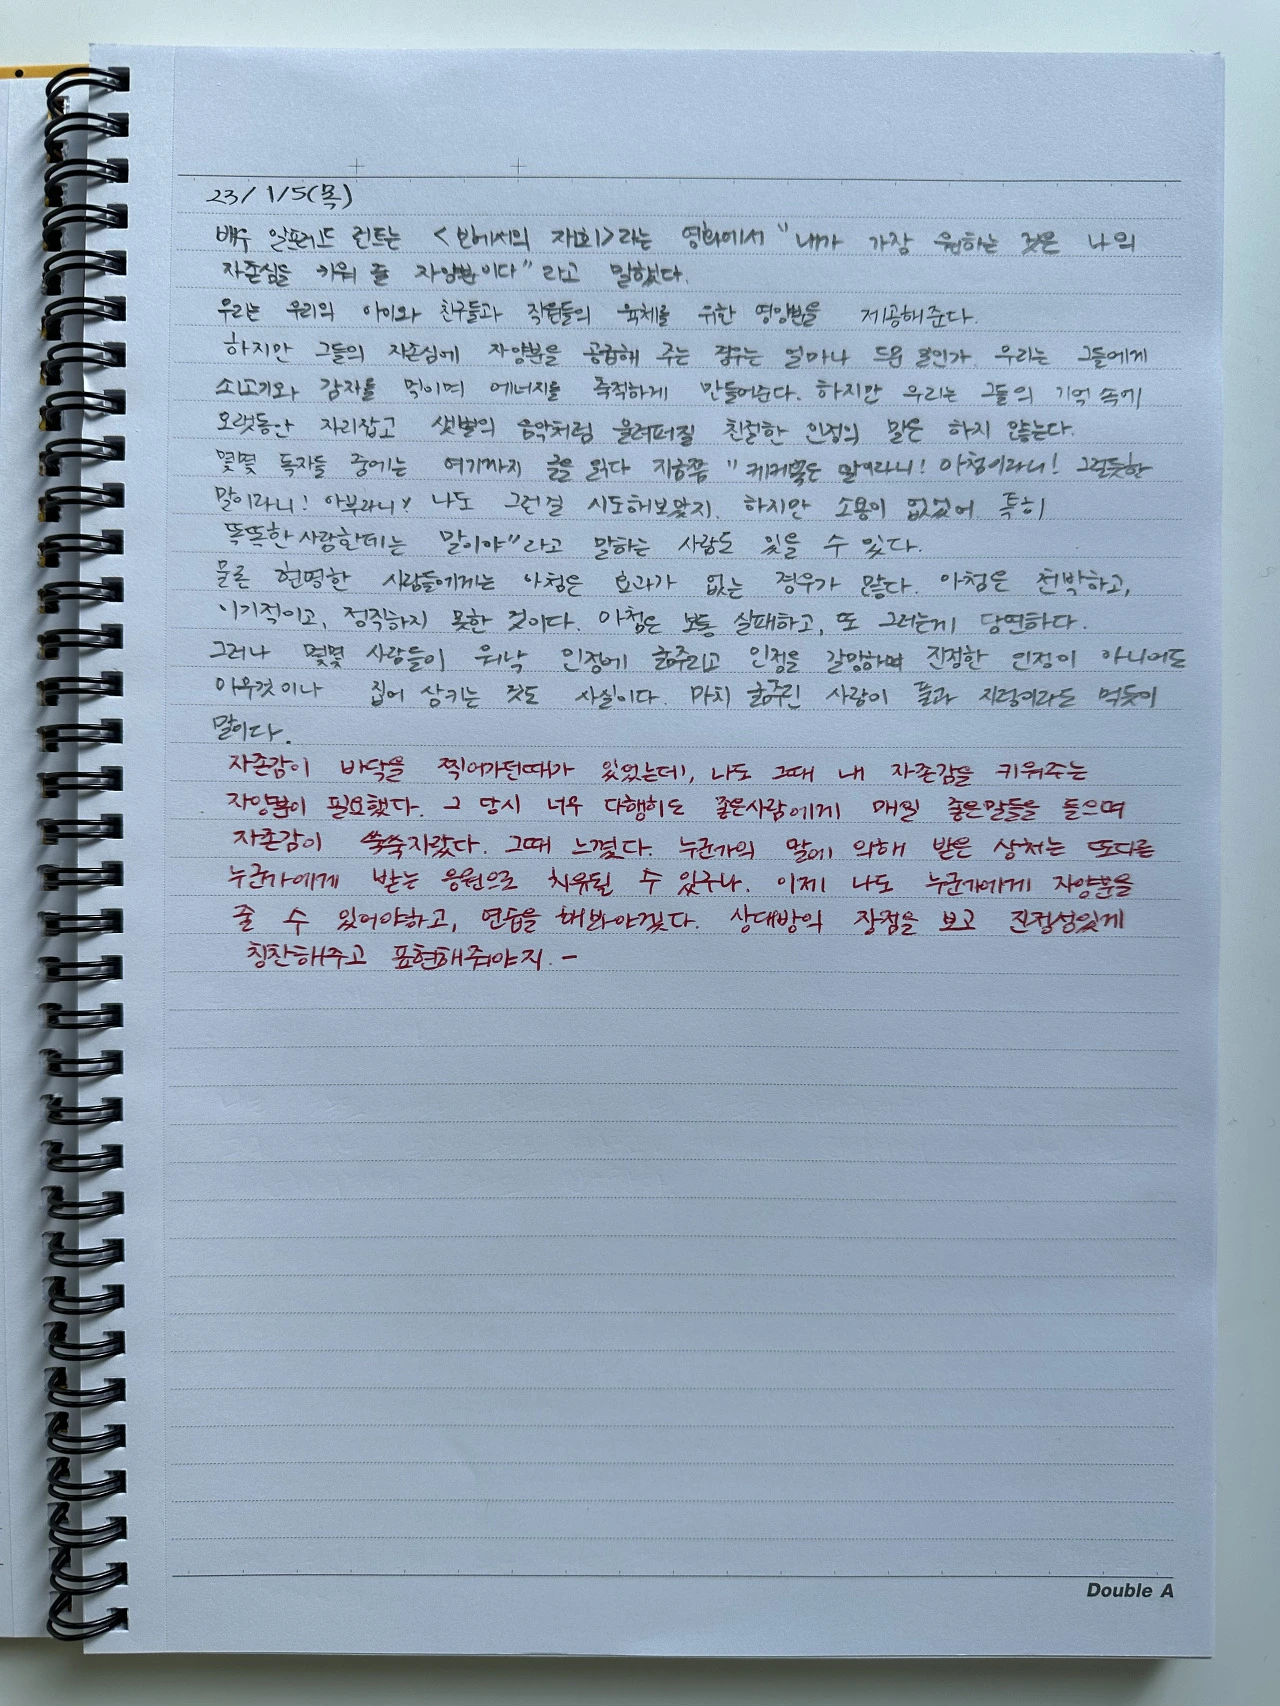 23/ 1/5(목)
배우 알프레드 런트는 <빈에서의 재회>라는 영화에서 "내가 가장 원하는 것은 나의
자존심을 키워 줄 자양분이다"라고 말했다.
우리는 우리의 아이와 친구들과 직원들의 육체를 위한 영양분을 제공해준다.
하지만 그들의 자존심에 자양분을 공급해 주는 경우는 얼마나 드문 일인가. 우리는 그들에게
소고기와 감자를 먹이며 에너지를 축적하게 만들어준다. 하지만 우리는 그들의 기억 속에
오랫동안 자리잡고 샛별의 음악처럼 울려퍼질 친절한 인정의 말은 하지 않는다.
몇몇 독자들 중에는 여기까지 글을 읽다 지금쯤 "케케묵은 말이라니! 아첨이라니! 그럴듯한
말이라니! 아부라니! 나도 그런걸 시도해보았지. 하지만 소용이 없었어 특히
똑똑한 사람한테는 말이야"라고 말하는 사람도 있을 수 있다.
물론 현명한 사람들에게는 아첨은 효과가 없는 경우가 많다. 아첨은 천박하고,
이기적이고, 정직하지 못한 것이다. 아첨은 보통 실패하고, 또 그러는게 당연하다.
그러나 몇몇 사람들이 워낙 인정에 굶주리고 인정을 갈망하며 진정한 인정이 아니어도
아무것이나 집어 삼키는 것도 사실이다. 마치 굶주린 사람이 풀과 지렁이라도 먹듯이
말이다.
자존감이 바닥을 찍어가던때가 있었는데, 나도 그때 내 자존감을 키워주는
자양분이 필요했다. 그 당시 너무 다행히도 좋은사람에게 매일 좋은말들을 들으며
자존감이 쑥쑥자랐다. 그때 느꼈다. 누군가의 말에 의해 받은 상처는 또다른
누군가에게 받는 응원으로 치유될 수 있구나. 이제 나도 누군가에게 자양분을
줄 수 있어야하고, 연습을 해봐야겠다. 상대방의 장점을 보고 진정성있게
칭찬해주고 표현해줘야지. -
Double A